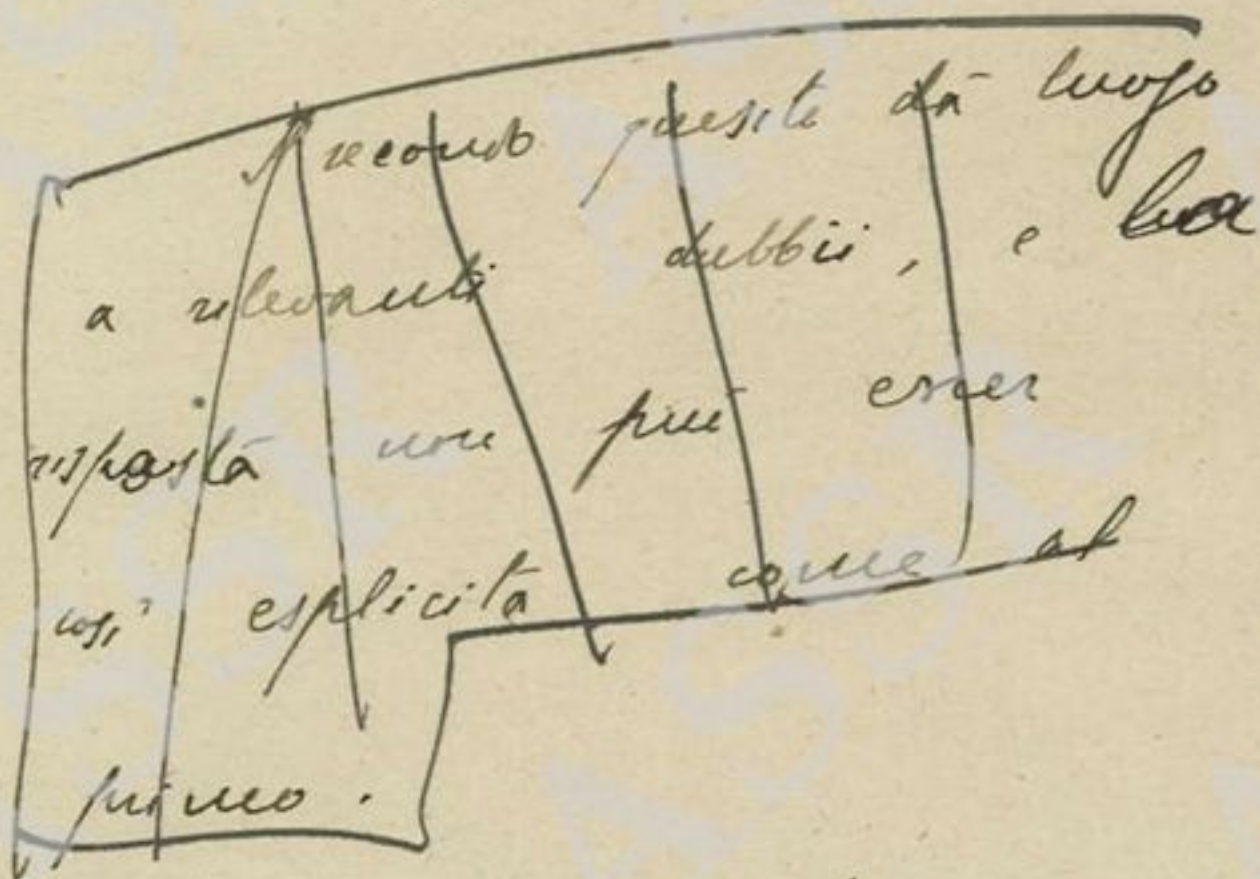 Il secondo quesito dà luogo
a rilevanti dubbii, e la
risposta non può esser
così esplicita come al
primo.